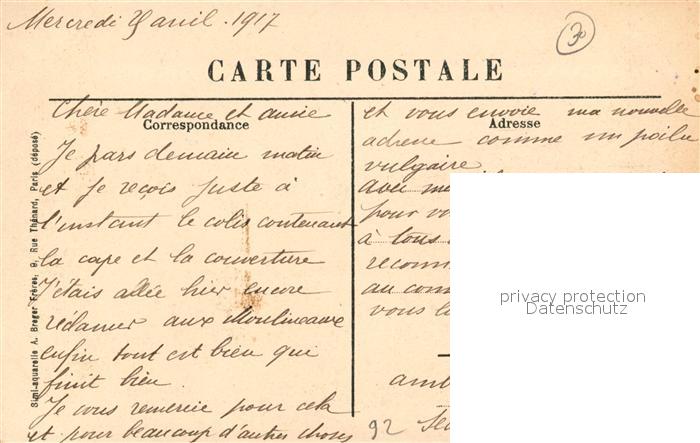 Mercredi 25 avril . 1917
30
CARTE POSTALE
Chère Madame et amie
Correspondance
Je pars demain matin
et je reçois juste à
l'instant le colis contenant
la cape et la couverture
J'étais allée hier encore
réclamer aux Moulineaux
enfin tout est bien qui
finit bien.
Je vous remercie pour cela
et pour beaucoup d'autres choses
et vous envoie ma nouvelle
Adresse
adresse comme un poilu
vulgaire
avec
pour
à tous
vous
92
Simi-aquarelle A. Breger Frères, 9, Rue Thénard, Paris (déposé)
privacy protection
Datenschutz